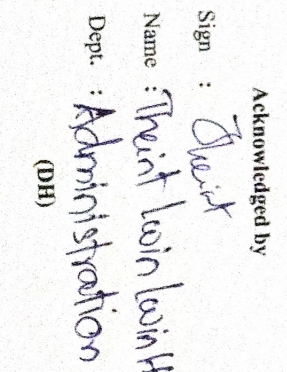 Acknowledged by
Sign :  Theint
Name : Theint Lwin Lwin H
Dept. : Administration
(DH)